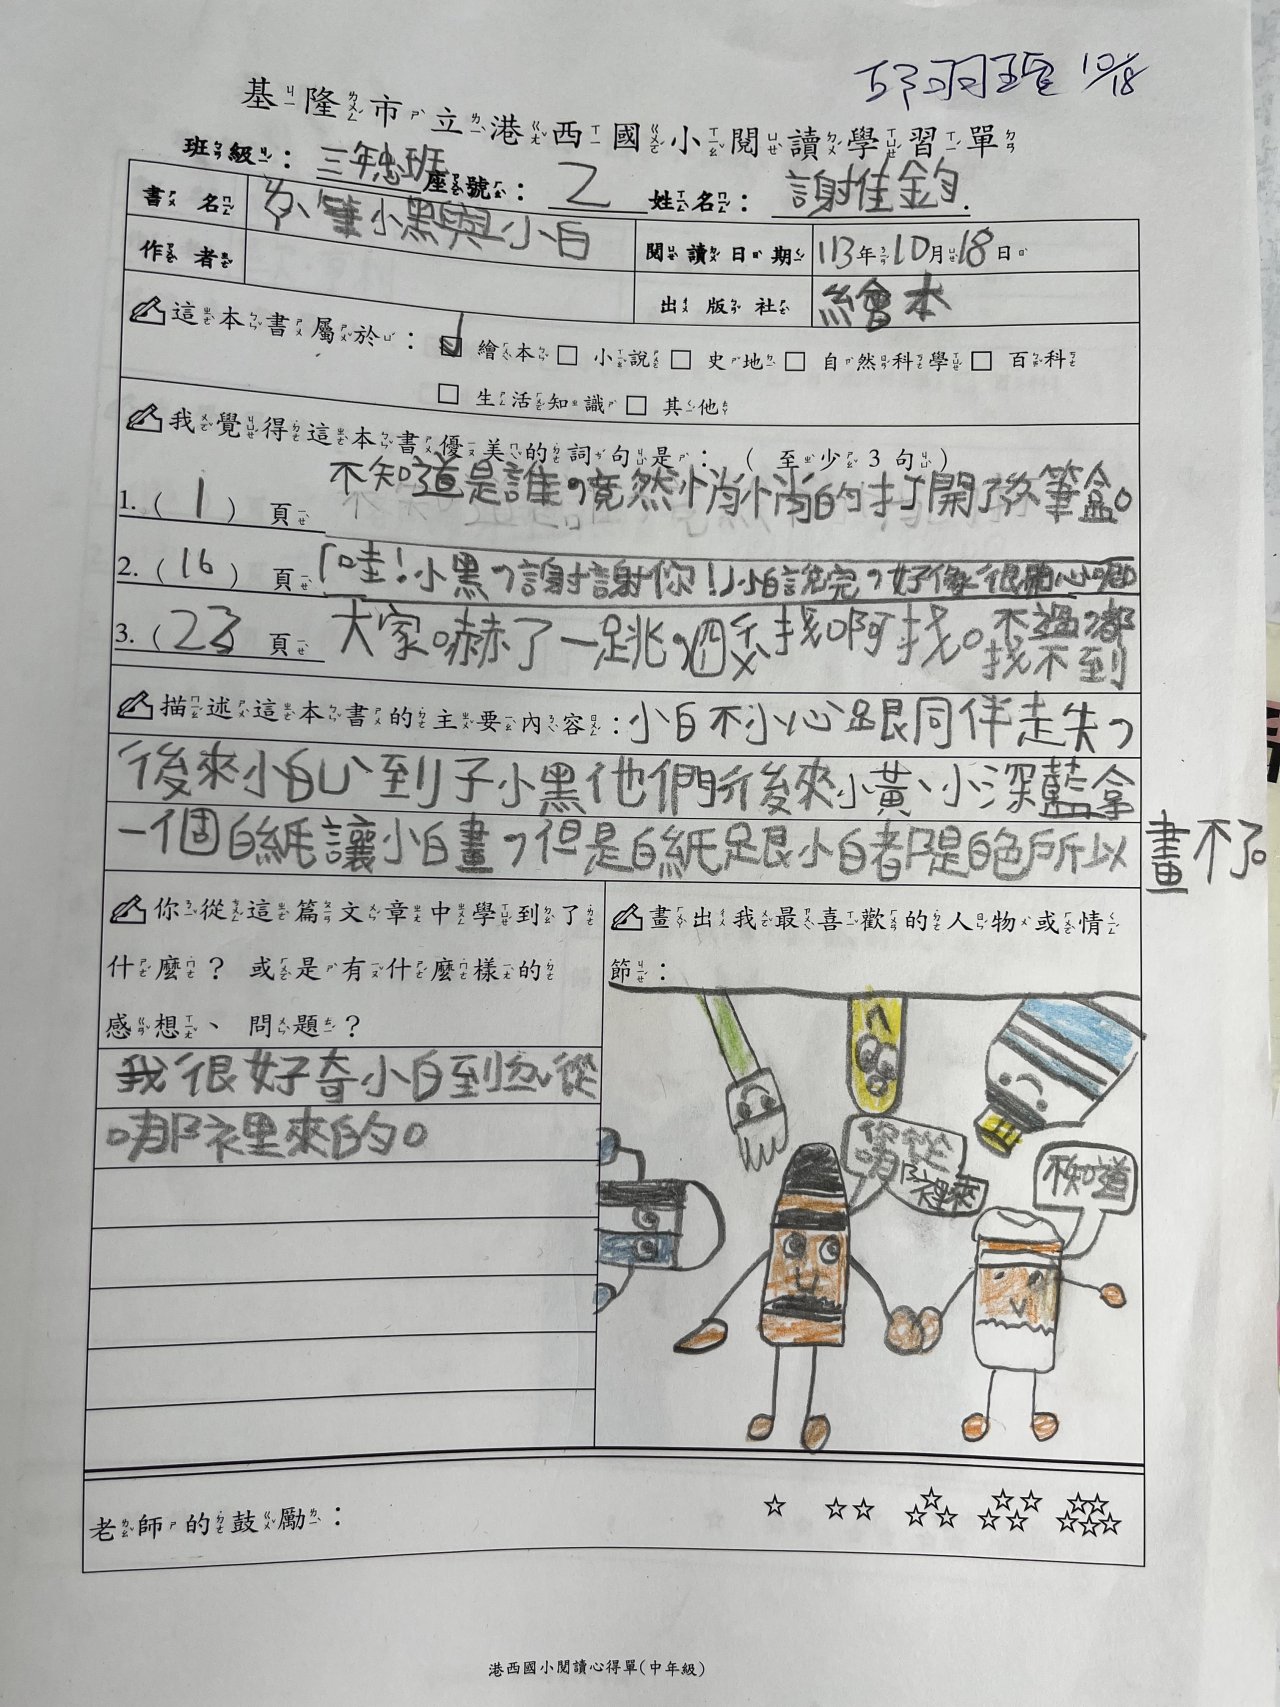 邱羽瑄 10/18
基隆市立港西國小閱讀學習單
班級：三年忠班 座號：2 姓名：謝佳鈞.
書名 ㄌㄚˋ筆小黑與小白
作者
閱讀日期 113年10月18日
出版社 繪本
這本書屬於：☑繪本□小說□史地□自然科學□百科
□生活知識□其他
我覺得這本書優美的詞句是：（至少3句）
1.（1）頁 不知道是誰，竟然悄悄的打開了ㄌㄚˋ筆盒。
2.（16）頁「哇！小黑，謝謝你！」小白說完，好像很開心呢
3.（23）頁 大家嚇了一跳，四ㄔㄨˋ找啊找。不過，都
找不到
描述這本書的主要內容：小白不小心跟同伴走失，
後來小白ㄩˋ到子小黑他們所後來小黃、小深藍拿
一個白紙讓小白畫，但是白紙跟小白都是白色所以
畫不了。
你從這篇文章中學到了
什麼？ 或是有什麼樣的
感想、問題？
我很好奇小白到ㄉㄧˇ從
哪裡來的。
畫出我最喜歡的人物或情
節：
你從
哪裡來
不知道
老師的鼓勵： ☆ ☆☆ ☆☆☆ ☆☆☆☆ ☆☆☆☆☆
港西國小閱讀心得單(中年級)